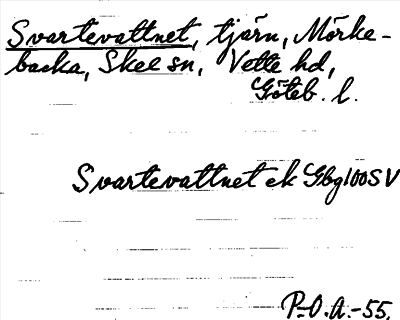 Svartevattnet, tjärn, Mörke-
backa, Skee sn, Vette hd,
Göteb. l.
Svartevattnet ek Gbg 100 SV
P-O.A.-55.